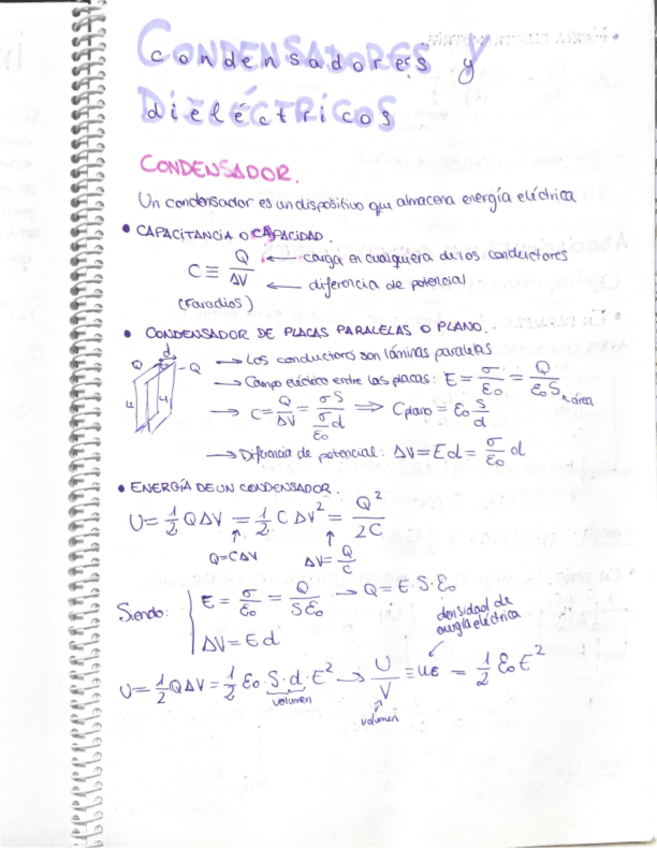 Condensadores y
dieléctricos
CONDENSADOR.
Un condensador es un dispositivo que almacena energía eléctrica
• CAPACITANCIA O CAPACIDAD.
C ≡ Q/ΔV ← carga en cualquiera de los conductores
← diferencia de potencial
(Faradios)
• CONDENSADOR DE PLACAS PARALELAS O PLANO.
d
Q -Q
→ Los conductores son láminas paralelas
→ Campo eléctrico entre las placas: E = σ/ε₀ = Q/ε₀S ↖ área
→ C = Q/ΔV = σS/(σ/ε₀ d) ⇒ Cplano = ε₀ S/d
→ Diferencia de potencial: ΔV = Ed = σ/ε₀ d
• ENERGÍA DE UN CONDENSADOR
U = 1/2 QΔV = 1/2 CΔV² = Q²/2C
↑ ↑
Q=CΔV ΔV = Q/C
Siendo: E = σ/ε₀ = Q/Sε₀ → Q = E·S·ε₀
ΔV = Ed
densidad de
energía eléctrica
U = 1/2 QΔV = 1/2 ε₀ S·d·E² → U/V ≡ uE = 1/2 ε₀E²
volumen
volumen